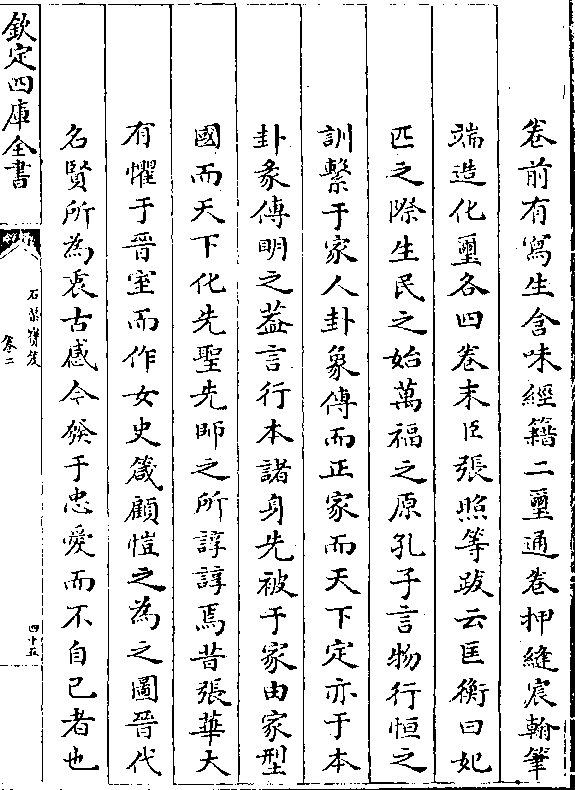 卷前有寫生含味經籍二璽通卷押縫宸翰筆
端造化璽各四卷末臣張照等跋云匡衡曰妃
匹之際生民之始萬福之原孔子言物行恒之
訓繫于家人卦象傳而正家而天下定亦于本
卦彖傳明之葢言行本諸身先被于家由家型
國而天下化先聖先師之所諄諄焉昔張華大
有懼于晉室而作女史箴顧愷之為之圖晉代
名賢所為衷古感今發于忠愛而不自已者也
欽定四庫全書
石渠寶笈
卷二
四十五